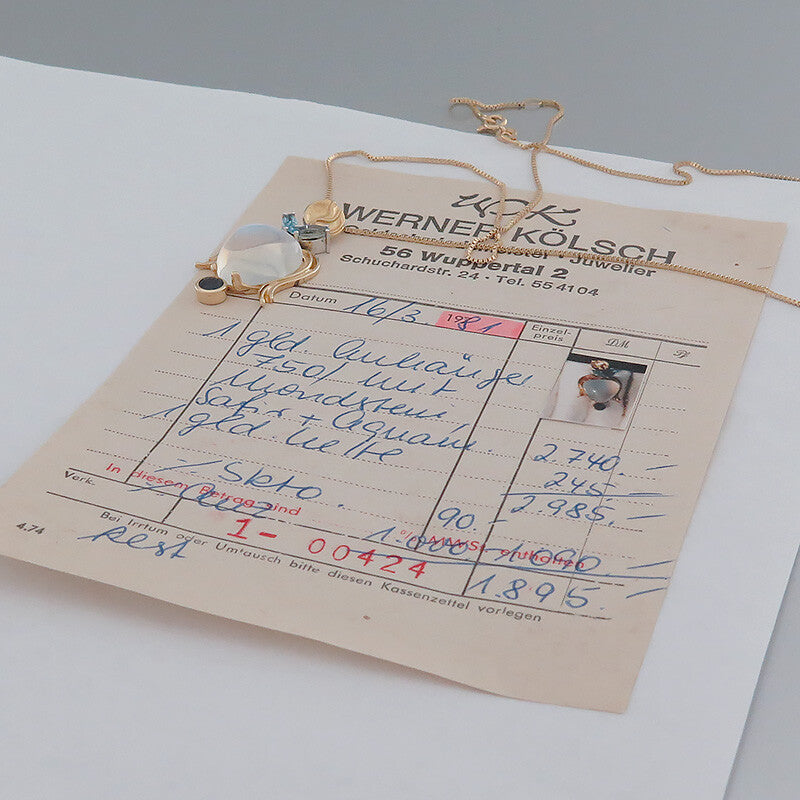 WK
WERNER KÖLSCH
Juwelier
56 Wuppertal 2
Schuchardstr. 24 · Tel. 55 41 04
Datum 16/3 1981
Einzel-preis DM Pf
1 gld. Anhänger
750/ mit
Mondstein,
Safir + Aquam. 2.740.-
1 gld. Kette 245.-
2.985.-
./. Skto. 90.-
./. Anz 1.000. 1.090.-
In diesem Betrag sind % MWSt. enthalten
Verk. 1- 00424
Rest 1.895.-
Bei Irrtum oder Umtausch bitte diesen Kassenzettel vorlegen
4.74